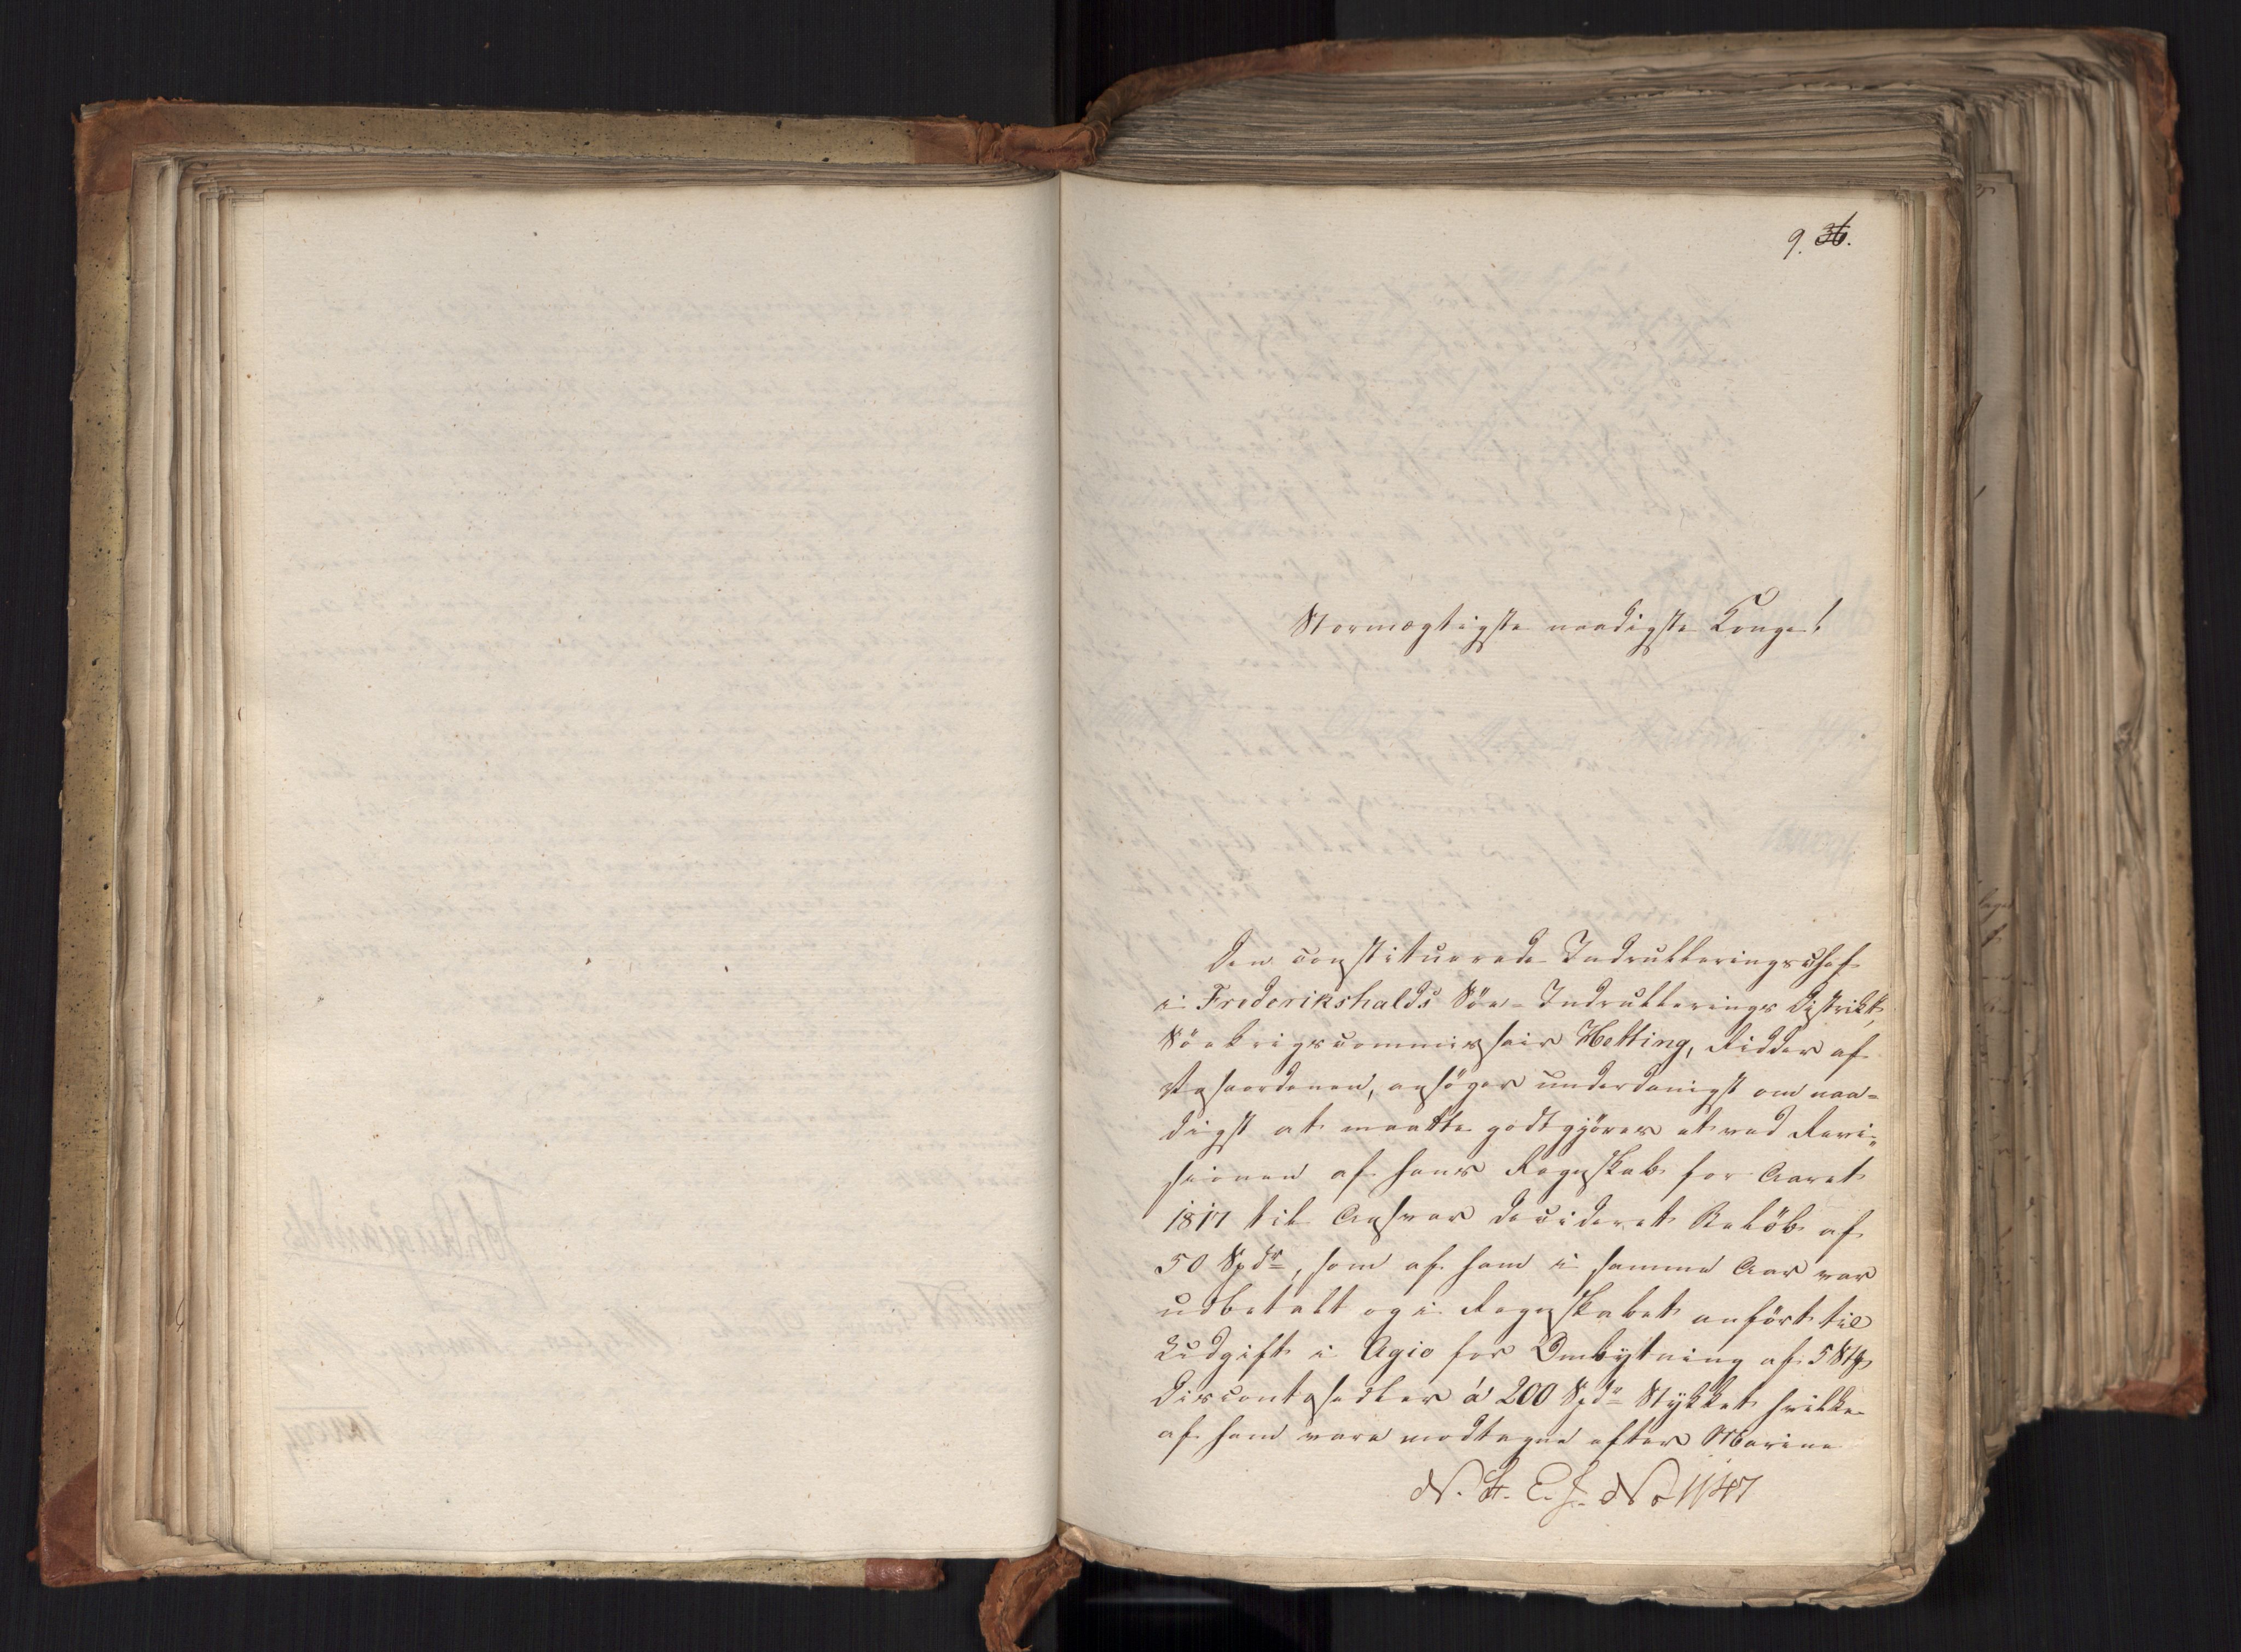 9. 36.
Stormægtigste naadigste Konge!
Den constituerede Indrulleringschef
i Frederikshalds Söe-Indrullerings District,
Söekrigscommissair Hetting, Ridder af
Vasaordenen, ansöger underdanigst om naa-
digst at maatte godtgjöres et ved Revi-
sionen af hans Regnskab for Aaret
1817 til Ansvar decideret Belöb af
50 Spdr, som af ham i samme Aar var
udbetalt og i Regnskabet anfört til
Udgift i Agio for Ombytning af 5 Stk
Discontosedler á 200 Spdr Stykket hvilke
af ham vare modtagne efter Marine
N. St. E. J. No 1147